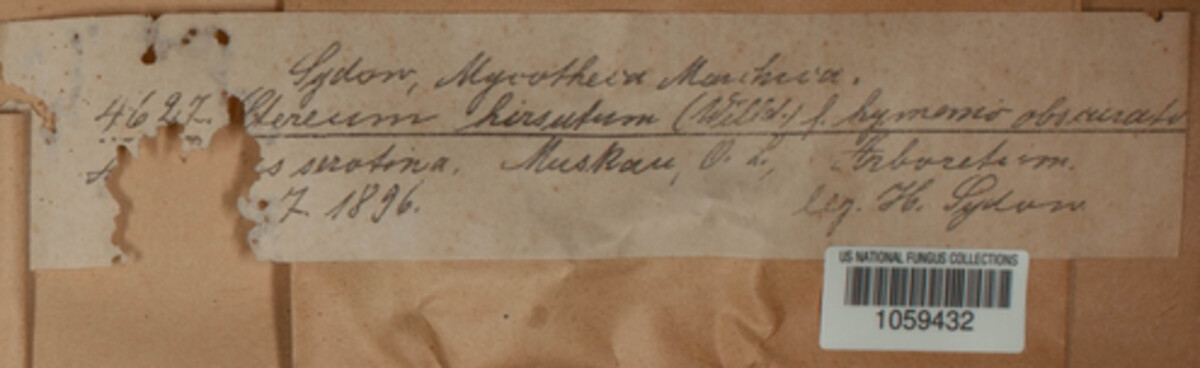 Sydow, Mycotheca Marchica.
4627. Stereum hirsutum (Willd.) f. hymenio obscurato
serotina. Muskau, O. L., Arboretum.
7 1896. leg. H. Sydow
US NATIONAL FUNGUS COLLECTIONS
1059432